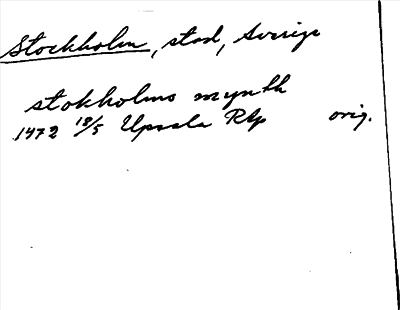 Stockholm, stad, Sverige
stokholms mynth
1472 18/5 Upsala Rtp orig.